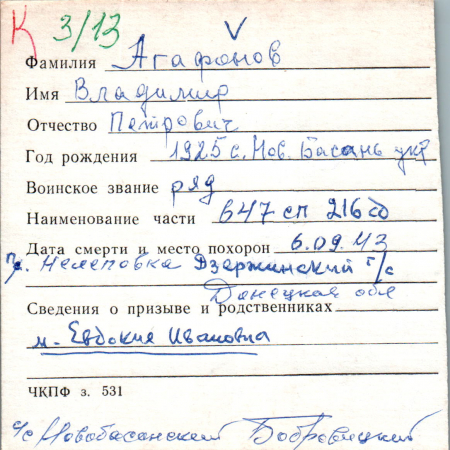 К 3/13 V
Фамилия Агафонов
Имя Владимир
Отчество Петрович
Год рождения 1925 с. Нов. Басань укр
Воинское звание ряд
Наименование части 647 сп 216 сд
Дата смерти и место похорон 6.09.43
Нелеповка Дзержинский г/с
Донецкая обл
Сведения о призыве и родственниках
м. Евдокия Ивановна
ЧКПФ з. 531
с/с Новобасанский Бобровицкий